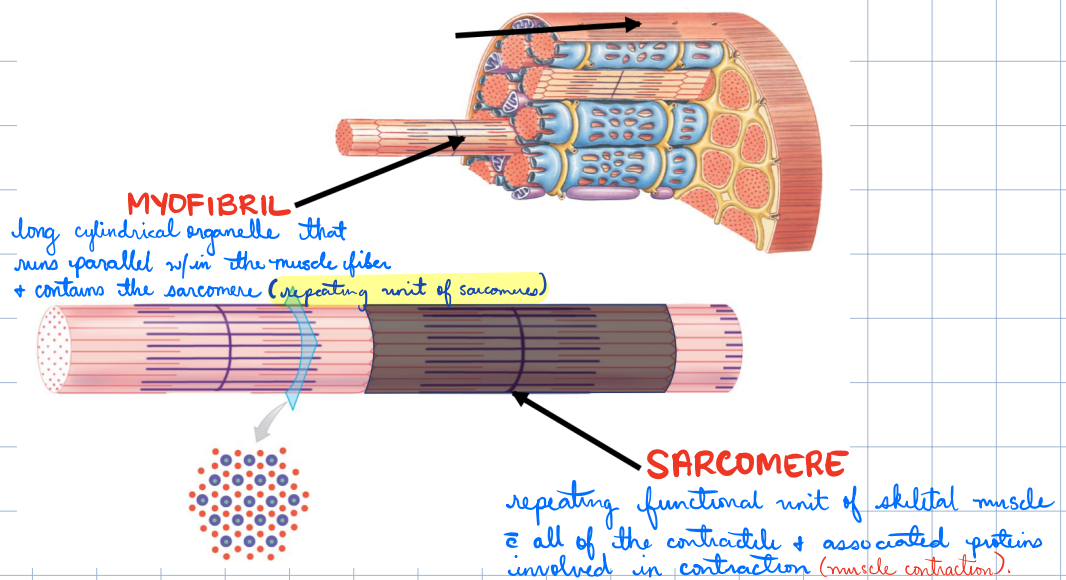 MYOFIBRIL
long cylindrical organelle that
runs parallel w/in the muscle fiber
+ contains the sarcomere (repeating unit of sarcomeres)
SARCOMERE
repeating functional unit of skeletal muscle
c̄ all of the contractile + associated proteins
involved in contraction (muscle contraction).